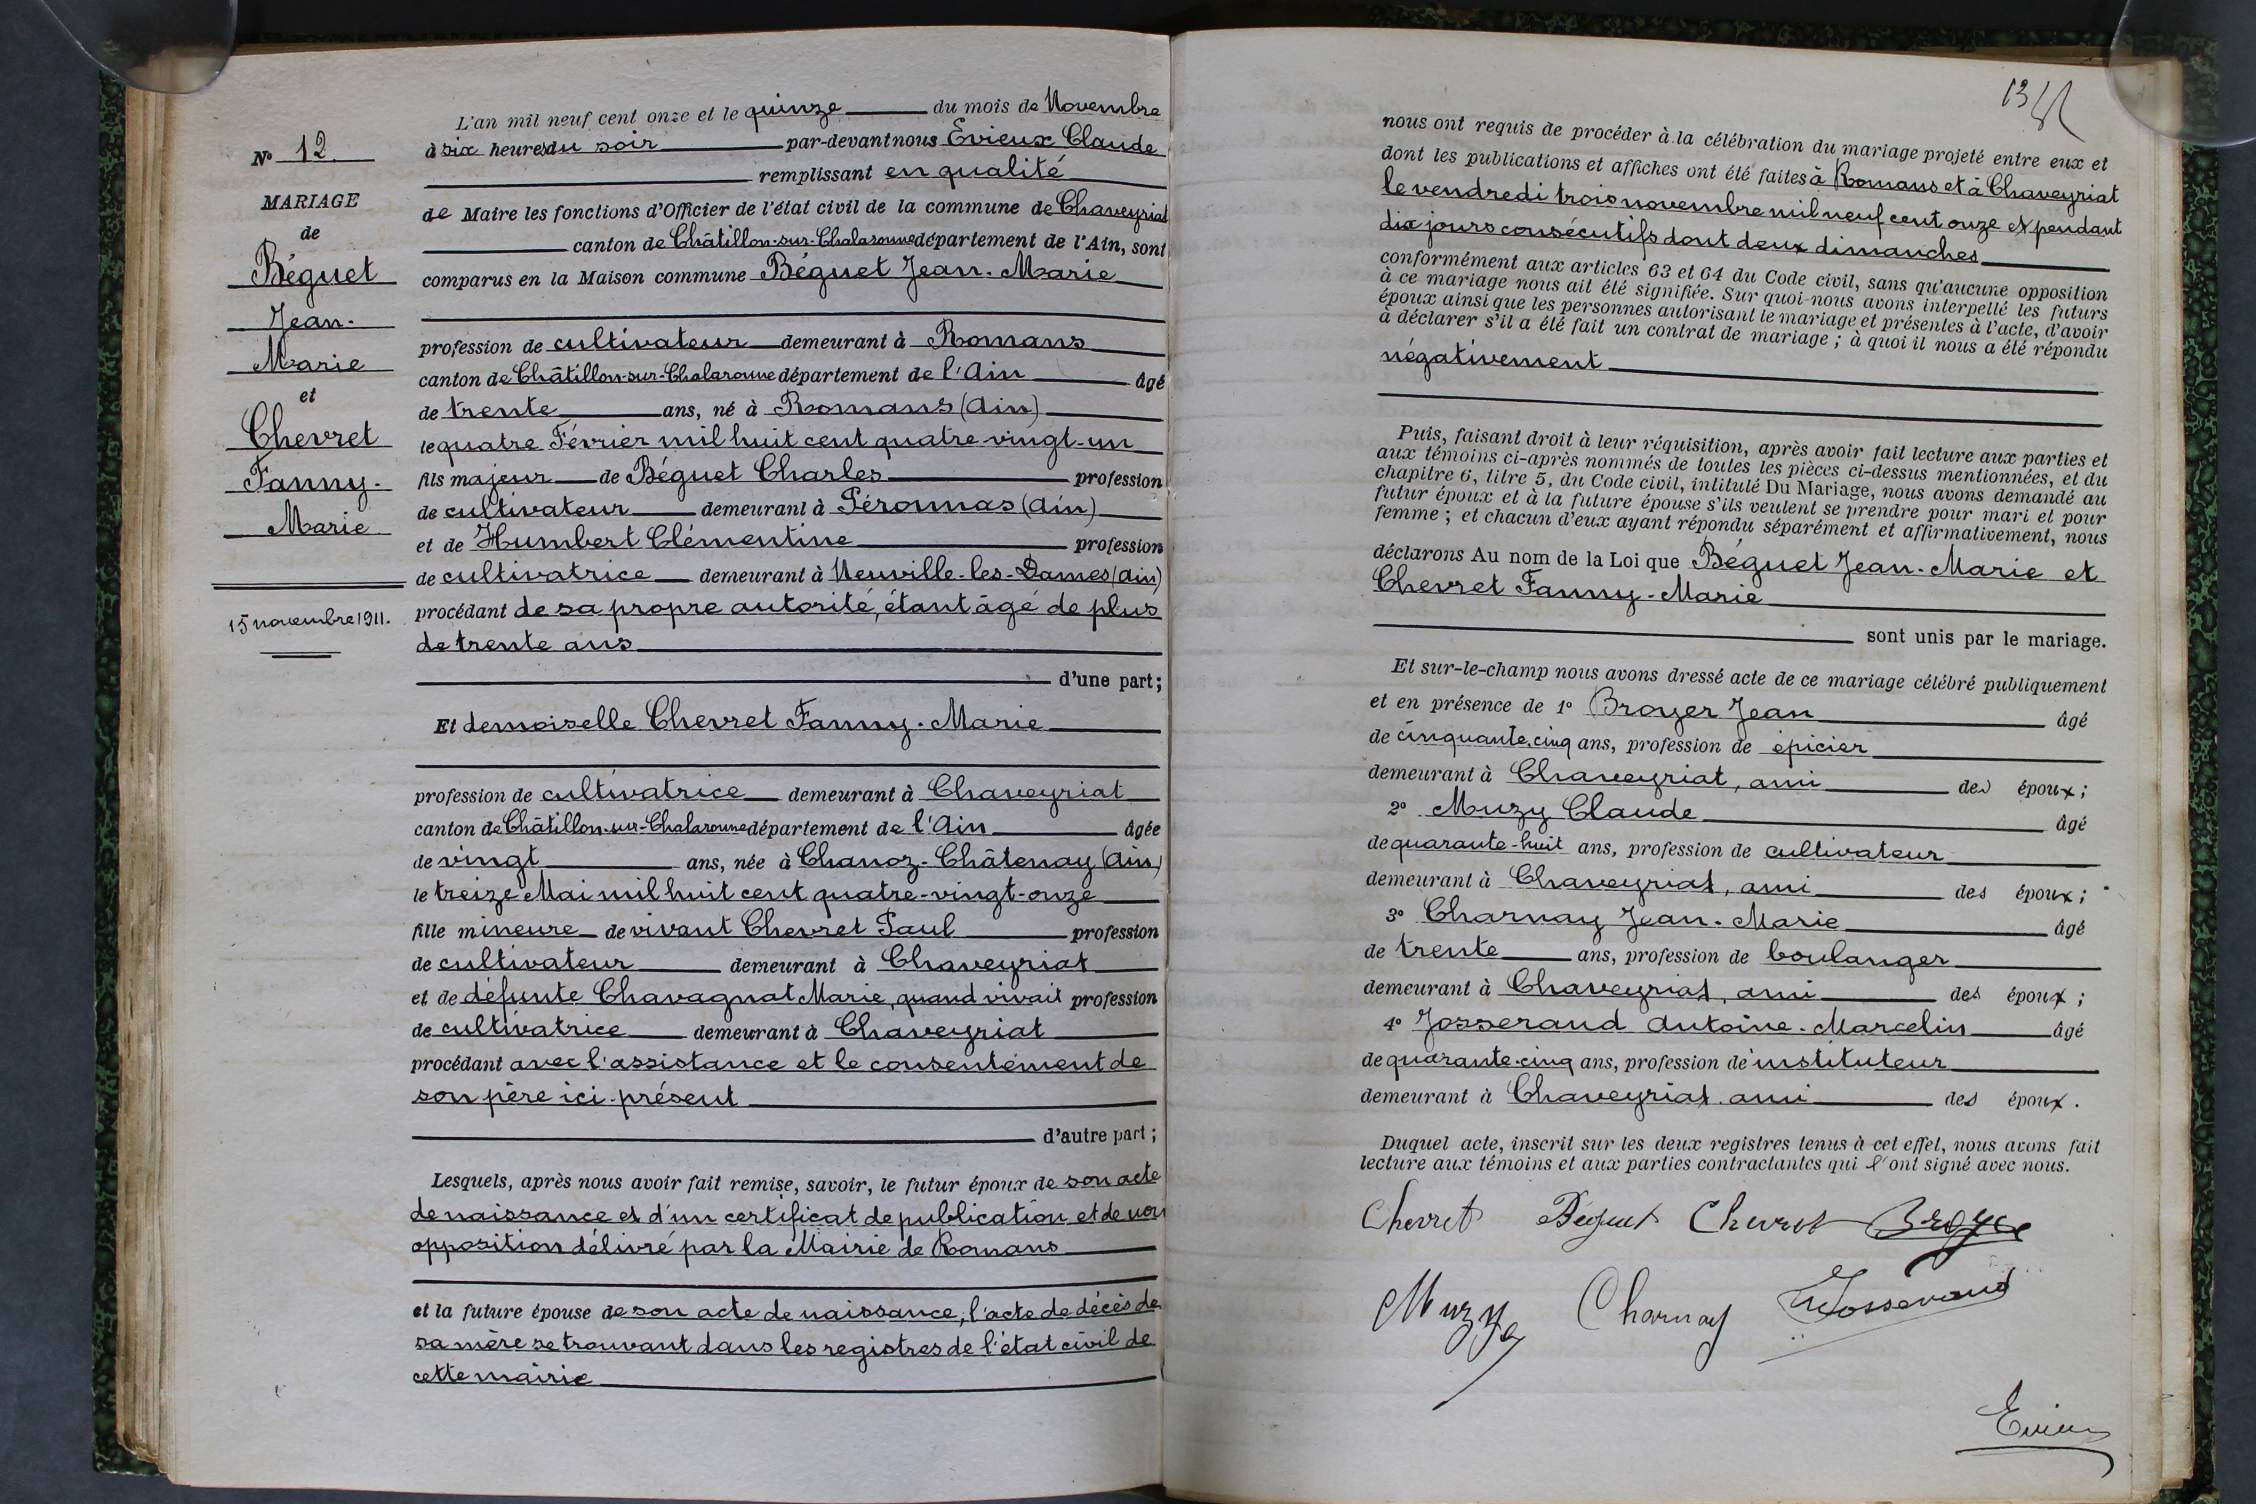 N° 12.
MARIAGE
de
Béguet
Jean-
Marie
et
Chevret
Fanny-
Marie
15 novembre 1911.
L'an mil neuf cent onze et le quinze du mois de Novembre
à six heures du soir par-devant nous Evieux Claude
remplissant en qualité
de Maire les fonctions d'Officier de l'état civil de la commune de Chaveyriat
canton de Châtillon-sur-Chalaronne département de l'Ain, sont
comparus en la Maison commune Béguet Jean-Marie
profession de cultivateur demeurant à Romans
canton de Châtillon-sur-Chalaronne département de l'Ain âgé
de trente ans, né à Romans (Ain)
le quatre Février mil huit cent quatre-vingt-un
fils majeur de Béguet Charles profession
de cultivateur demeurant à Péronnas (Ain)
et de Humbert Clémentine profession
de cultivatrice demeurant à Neuville-les-Dames (Ain)
procédant de sa propre autorité, étant âgé de plus
de trente ans
d'une part;
Et demoiselle Chevret Fanny-Marie
profession de cultivatrice demeurant à Chaveyriat
canton de Châtillon-sur-Chalaronne département de l'Ain âgée
de vingt ans, née à Chanoz-Châtenay (Ain)
le treize Mai mil huit cent quatre-vingt-onze
fille mineure de vivant Chevret Paul profession
de cultivateur demeurant à Chaveyriat
et de défunte Chavagnat Marie, quand vivait profession
de cultivatrice demeurant à Chaveyriat
procédant avec l'assistance et le consentement de
son père ici présent
d'autre part;
Lesquels, après nous avoir fait remise, savoir, le futur époux de son acte
de naissance et d'un certificat de publication et de non
opposition délivré par la Mairie de Romans
et la future épouse de son acte de naissance, l'acte de décès de
sa mère se trouvant dans les registres de l'état civil de
cette mairie
13
nous ont requis de procéder à la célébration du mariage projeté entre eux et
dont les publications et affiches ont été faites à Romans et à Chaveyriat
le vendredi trois novembre mil neuf cent onze et pendant
dix jours consécutifs dont deux dimanches
conformément aux articles 63 et 64 du Code civil, sans qu'aucune opposition
à ce mariage nous ait été signifiée. Sur quoi nous avons interpellé les futurs
époux ainsi que les personnes autorisant le mariage et présentes à l'acte, d'avoir
à déclarer s'il a été fait un contrat de mariage; à quoi il nous a été répondu
négativement
Puis, faisant droit à leur réquisition, après avoir fait lecture aux parties et
aux témoins ci-après nommés de toutes les pièces ci-dessus mentionnées, et du
chapitre 6, titre 5, du Code civil, intitulé Du Mariage, nous avons demandé au
futur époux et à la future épouse s'ils veulent se prendre pour mari et pour
femme; et chacun d'eux ayant répondu séparément et affirmativement, nous
déclarons Au nom de la Loi que Béguet Jean-Marie et
Chevret Fanny-Marie
sont unis par le mariage.
Et sur-le-champ nous avons dressé acte de ce mariage célébré publiquement
et en présence de 1° Broyer Jean âgé
de cinquante-cinq ans, profession de épicier
demeurant à Chaveyriat, ami des époux;
2° Muzy Claude âgé
de quarante-huit ans, profession de cultivateur
demeurant à Chaveyriat, ami des époux;
3° Charnay Jean-Marie âgé
de trente ans, profession de boulanger
demeurant à Chaveyriat, ami des époux;
4° Josserand Antoine-Marcelin âgé
de quarante-cinq ans, profession d'instituteur
demeurant à Chaveyriat ami des époux.
Duquel acte, inscrit sur les deux registres tenus à cet effet, nous avons fait
lecture aux témoins et aux parties contractantes qui l'ont signé avec nous.
Chevret Béguet Chevret Broyer
Muzy Charnay Josserand
Evieux